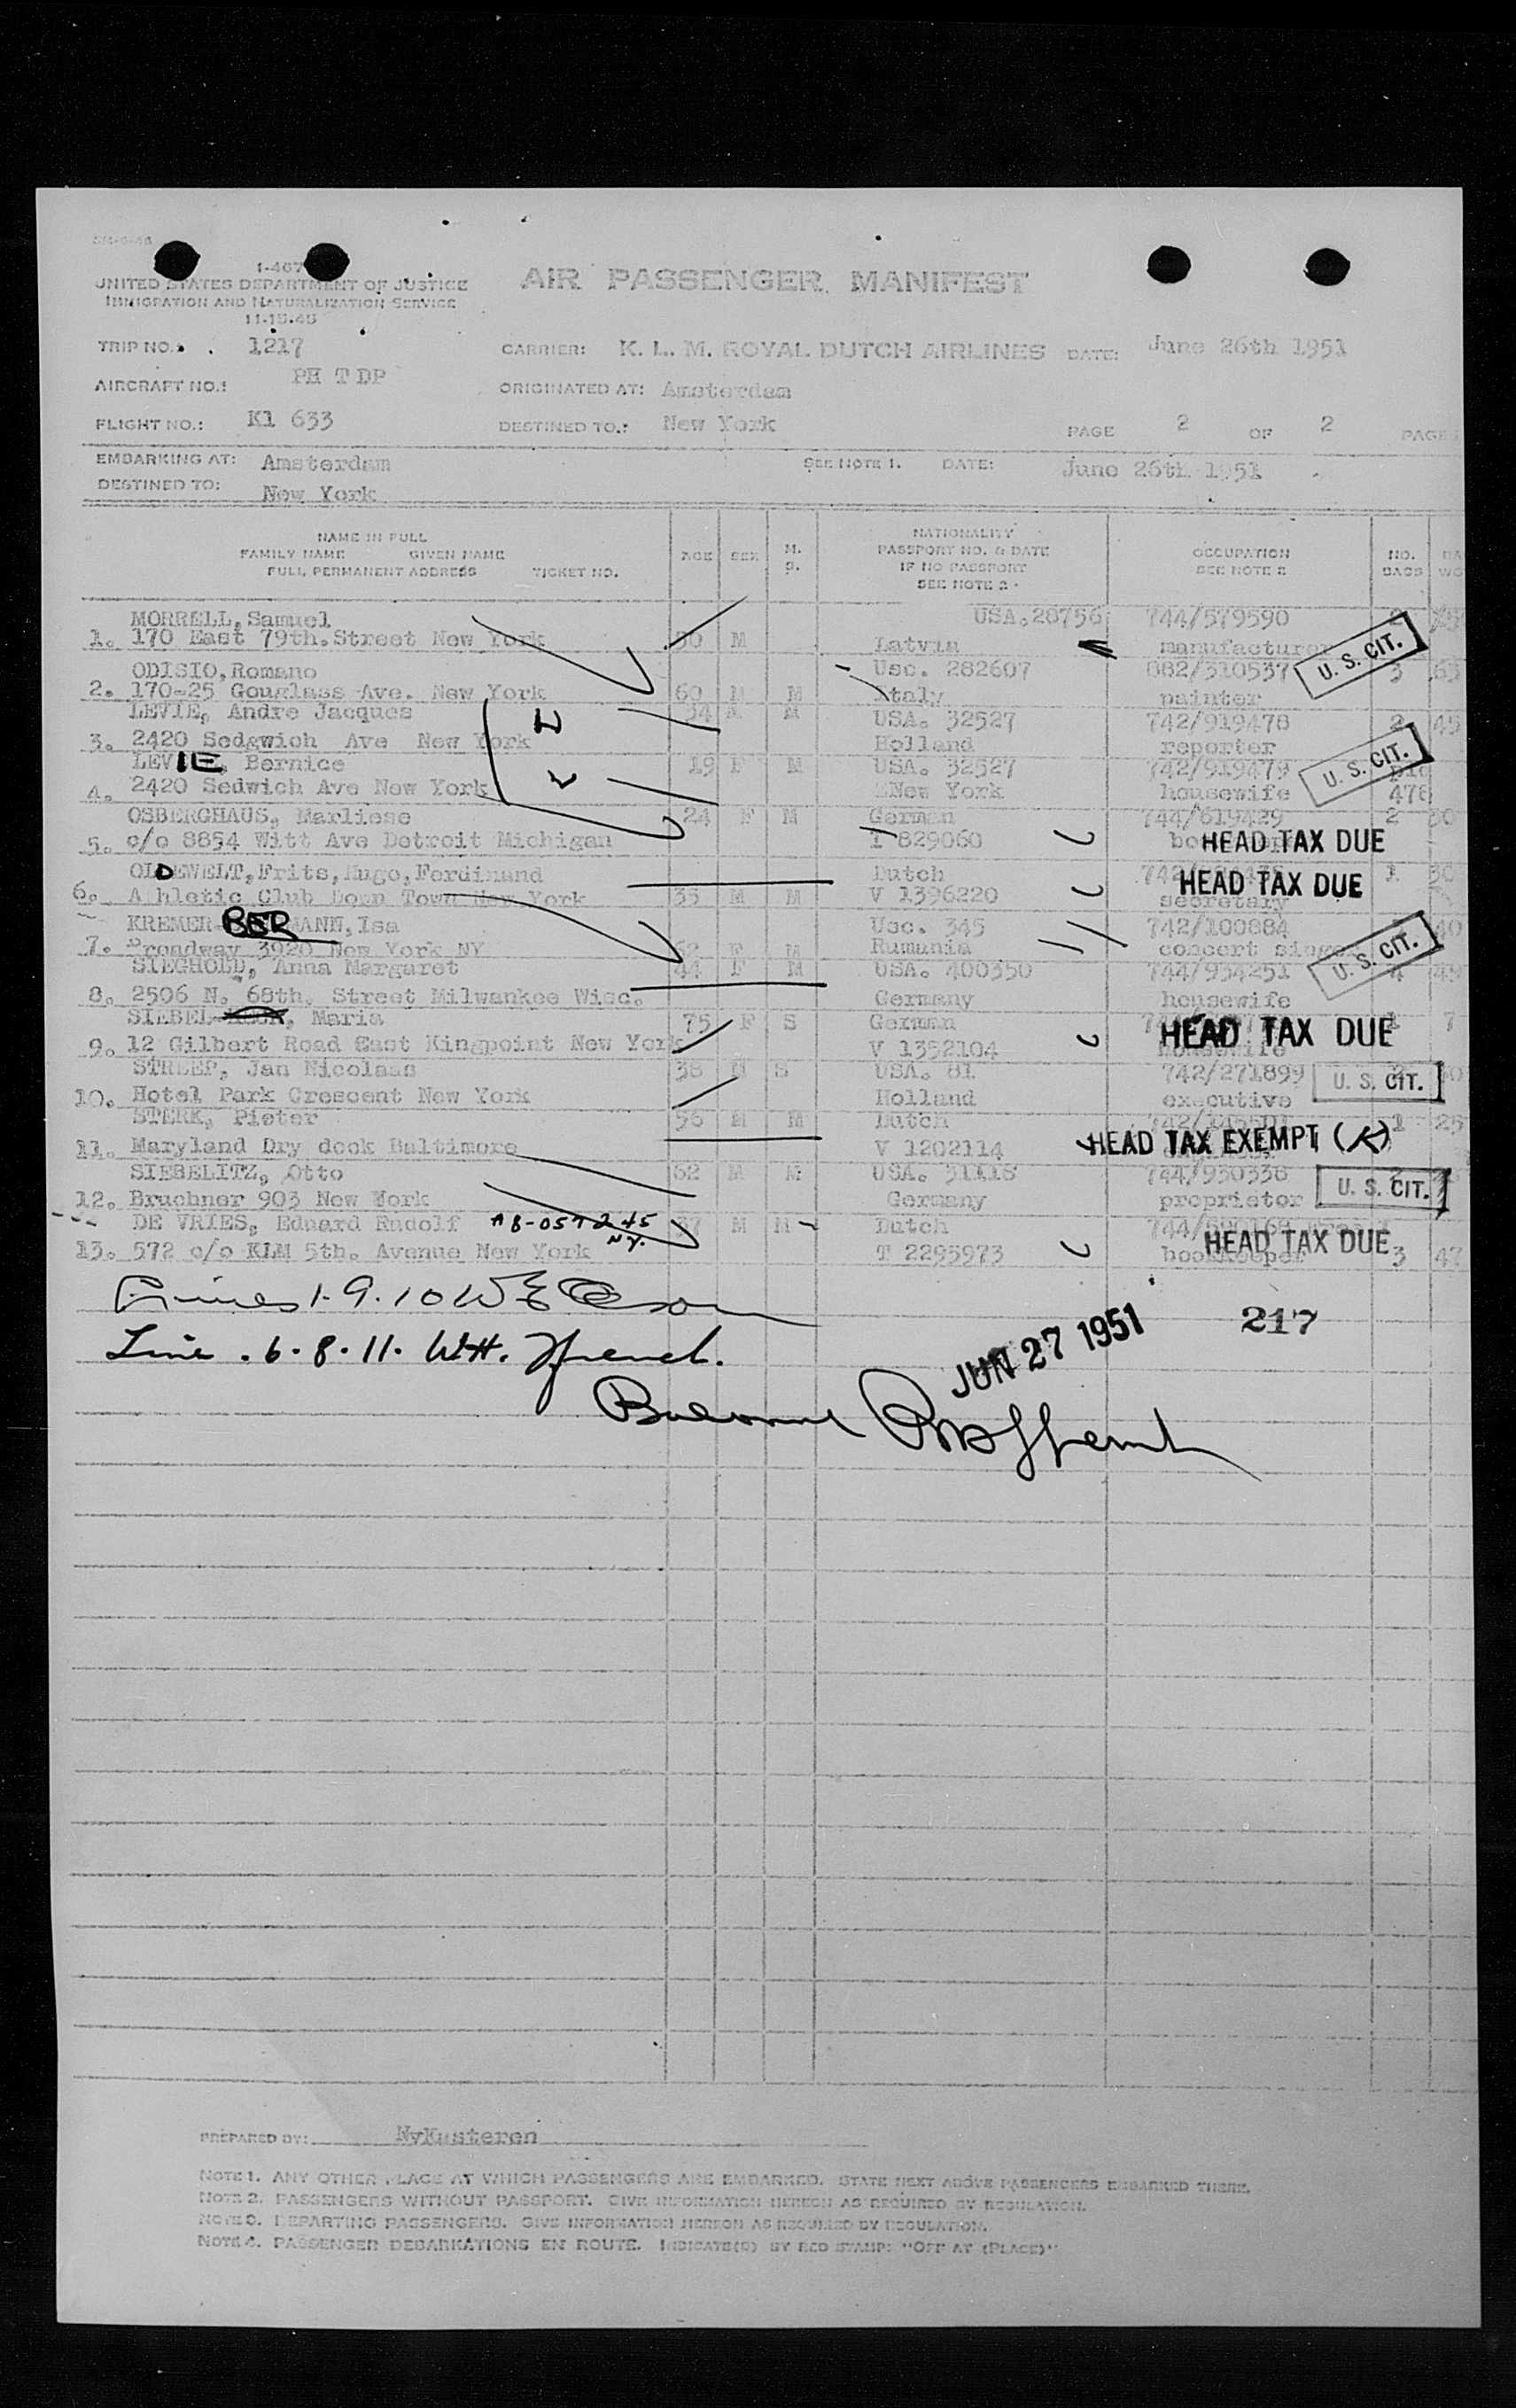 I-407
UNITED STATES DEPARTMENT OF JUSTICE
IMMIGRATION AND NATURALIZATION SERVICE
11-15-45
AIR PASSENGER MANIFEST
TRIP NO.: 1217 CARRIER: K. L. M. ROYAL DUTCH AIRLINES DATE: June 26th 1951
AIRCRAFT NO.: PH TDP ORIGINATED AT: Amsterdam
FLIGHT NO.: Kl 633 DESTINED TO.: New York PAGE 2 OF 2 PAGES
EMBARKING AT: Amsterdam SEE NOTE 1. DATE: June 26th 1951
DESTINED TO: New York
NAME IN FULL
FAMILY NAME GIVEN NAME
FULL PERMANENT ADDRESS TICKET NO. AGE SEX M. S.
NATIONALITY
PASSPORT NO. & DATE
IF NO PASSPORT
SEE NOTE 2
OCCUPATION
SEE NOTE 2
NO. BAGS
MORRELL, Samuel USA.28756 744/579590
1. 170 East 79th.Street New York 50 M Latvia manufacturer U. S. CIT.
ODISIO, Romano Usc. 282607 682/310537 3 63
2. 170-25 Gouglass Ave. New York 60 M M Italy painter
LEVIE, Andre Jacques 34 M M USA. 32527 742/919478 2 45
3. 2420 Sedgwich Ave New York Holland reporter
LEVIE, Bernice 19 F M USA. 32527 742/919479 U. S. CIT.
4. 2420 Sedwich Ave New York New York housewife 478
OSBERGHAUS, Marliese 24 F M German 744/619429 2 30
5. c/o 8854 Witt Ave Detroit Michigan T 829060 HEAD TAX DUE
OLDEWELT, Frits, Hugo, Ferdinand Dutch 1 30
6. A hletic Club Down Town New York 35 M M V 1396220 secretary HEAD TAX DUE
KREMER BERMANN, Isa Usc. 345 742/100884 40
7. Broadway 3920 New York NY 62 F M Rumania concert singer U. S. CIT.
SIEGHOLD, Anna Margaret 44 F M USA. 400350 744/934251 4 49
8. 2506 N. 68th. Street Milwankee Wisc. Germany housewife
SIEBEL, Maria 75 F S German 1 7
9. 12 Gilbert Road East Kingpoint New York V 1352104 housewife HEAD TAX DUE
STREEP, Jan Nicolaas 38 M S USA. 81 742/271899 U. S. CIT.
10. Hotel Park Crescent New York Holland executive
STERK, Pieter 56 M M Dutch 1 25
11. Maryland Dry dock Baltimore V 1202114 HEAD TAX EXEMPT (K)
SIEBELITZ, Otto 62 M M USA. 31118 744/930336
12. Bruchner 903 New York Germany proprietor U. S. CIT.
DE VRIES, Eduard Rudolf 37 M M Dutch
13. 572 c/o KLM 5th. Avenue New York T 2295973 bookkeeper HEAD TAX DUE 3 47
1-9-10
Line . 6-8-11. WH. French.
JUN 27 1951
217
PREPARED BY: NvKusteren
NOTE 1. ANY OTHER PLACE AT WHICH PASSENGERS ARE EMBARKED. STATE NEXT ABOVE PASSENGERS EMBARKED THERE.
NOTE 2. PASSENGERS WITHOUT PASSPORT. GIVE INFORMATION HEREON AS REQUIRED BY REGULATION.
NOTE 3. DEPARTING PASSENGERS. GIVE INFORMATION HEREON AS REQUIRED BY REGULATION.
NOTE 4. PASSENGER DEBARKATIONS EN ROUTE. INDICATE(D) BY RED STAMP: "OFF AT (PLACE)"